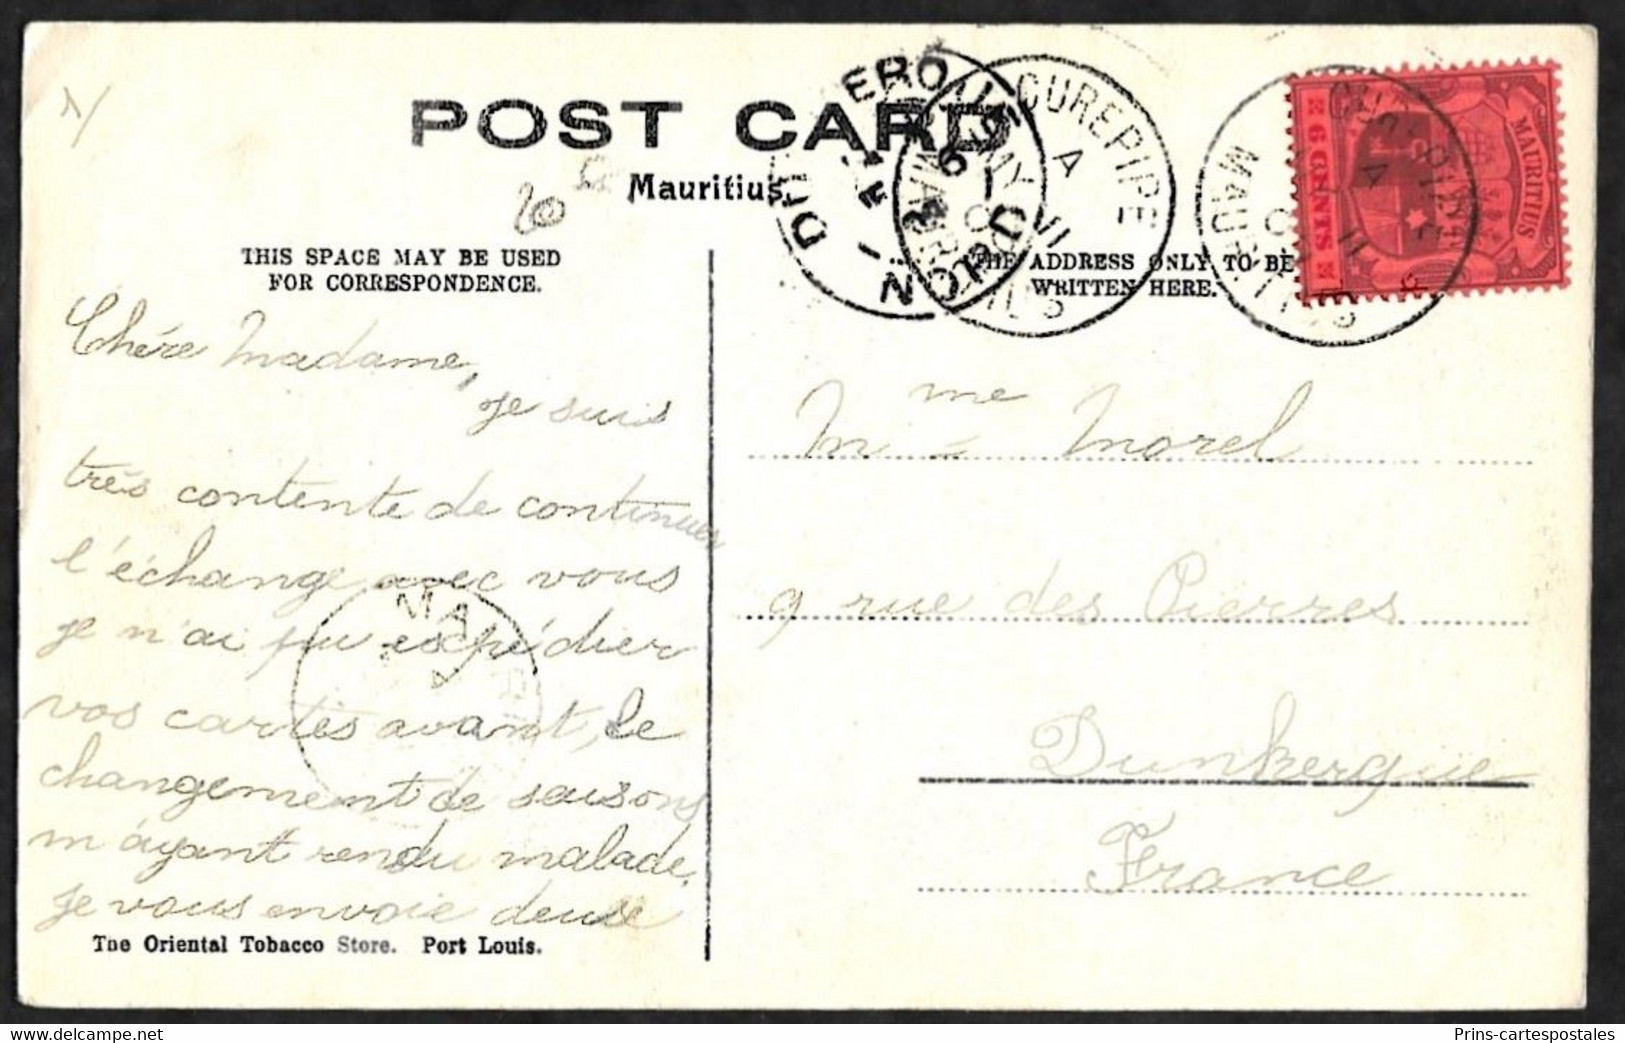 POST CARD
20
Mauritius.
THIS SPACE MAY BE USED
FOR CORRESPONDENCE.
THE ADDRESS ONLY TO BE
WRITTEN HERE.
CUREPIPE
A
VI
MAURITIUS
CUREPIPE
A
MAURITIUS
MAURITIUS
6 CENTS
Chére Madame,
je suis
trés contente de continuer
l'échange avec vous
je n'ai pu expédier
vos cartes avant, le
changement de saisons
m'áyant rendu malade.
je vous envoie deux
The Oriental Tobacco Store. Port Louis.
Mme Morel
9 rue des Pierres
Dunkerque
France
Prins-cartespostales